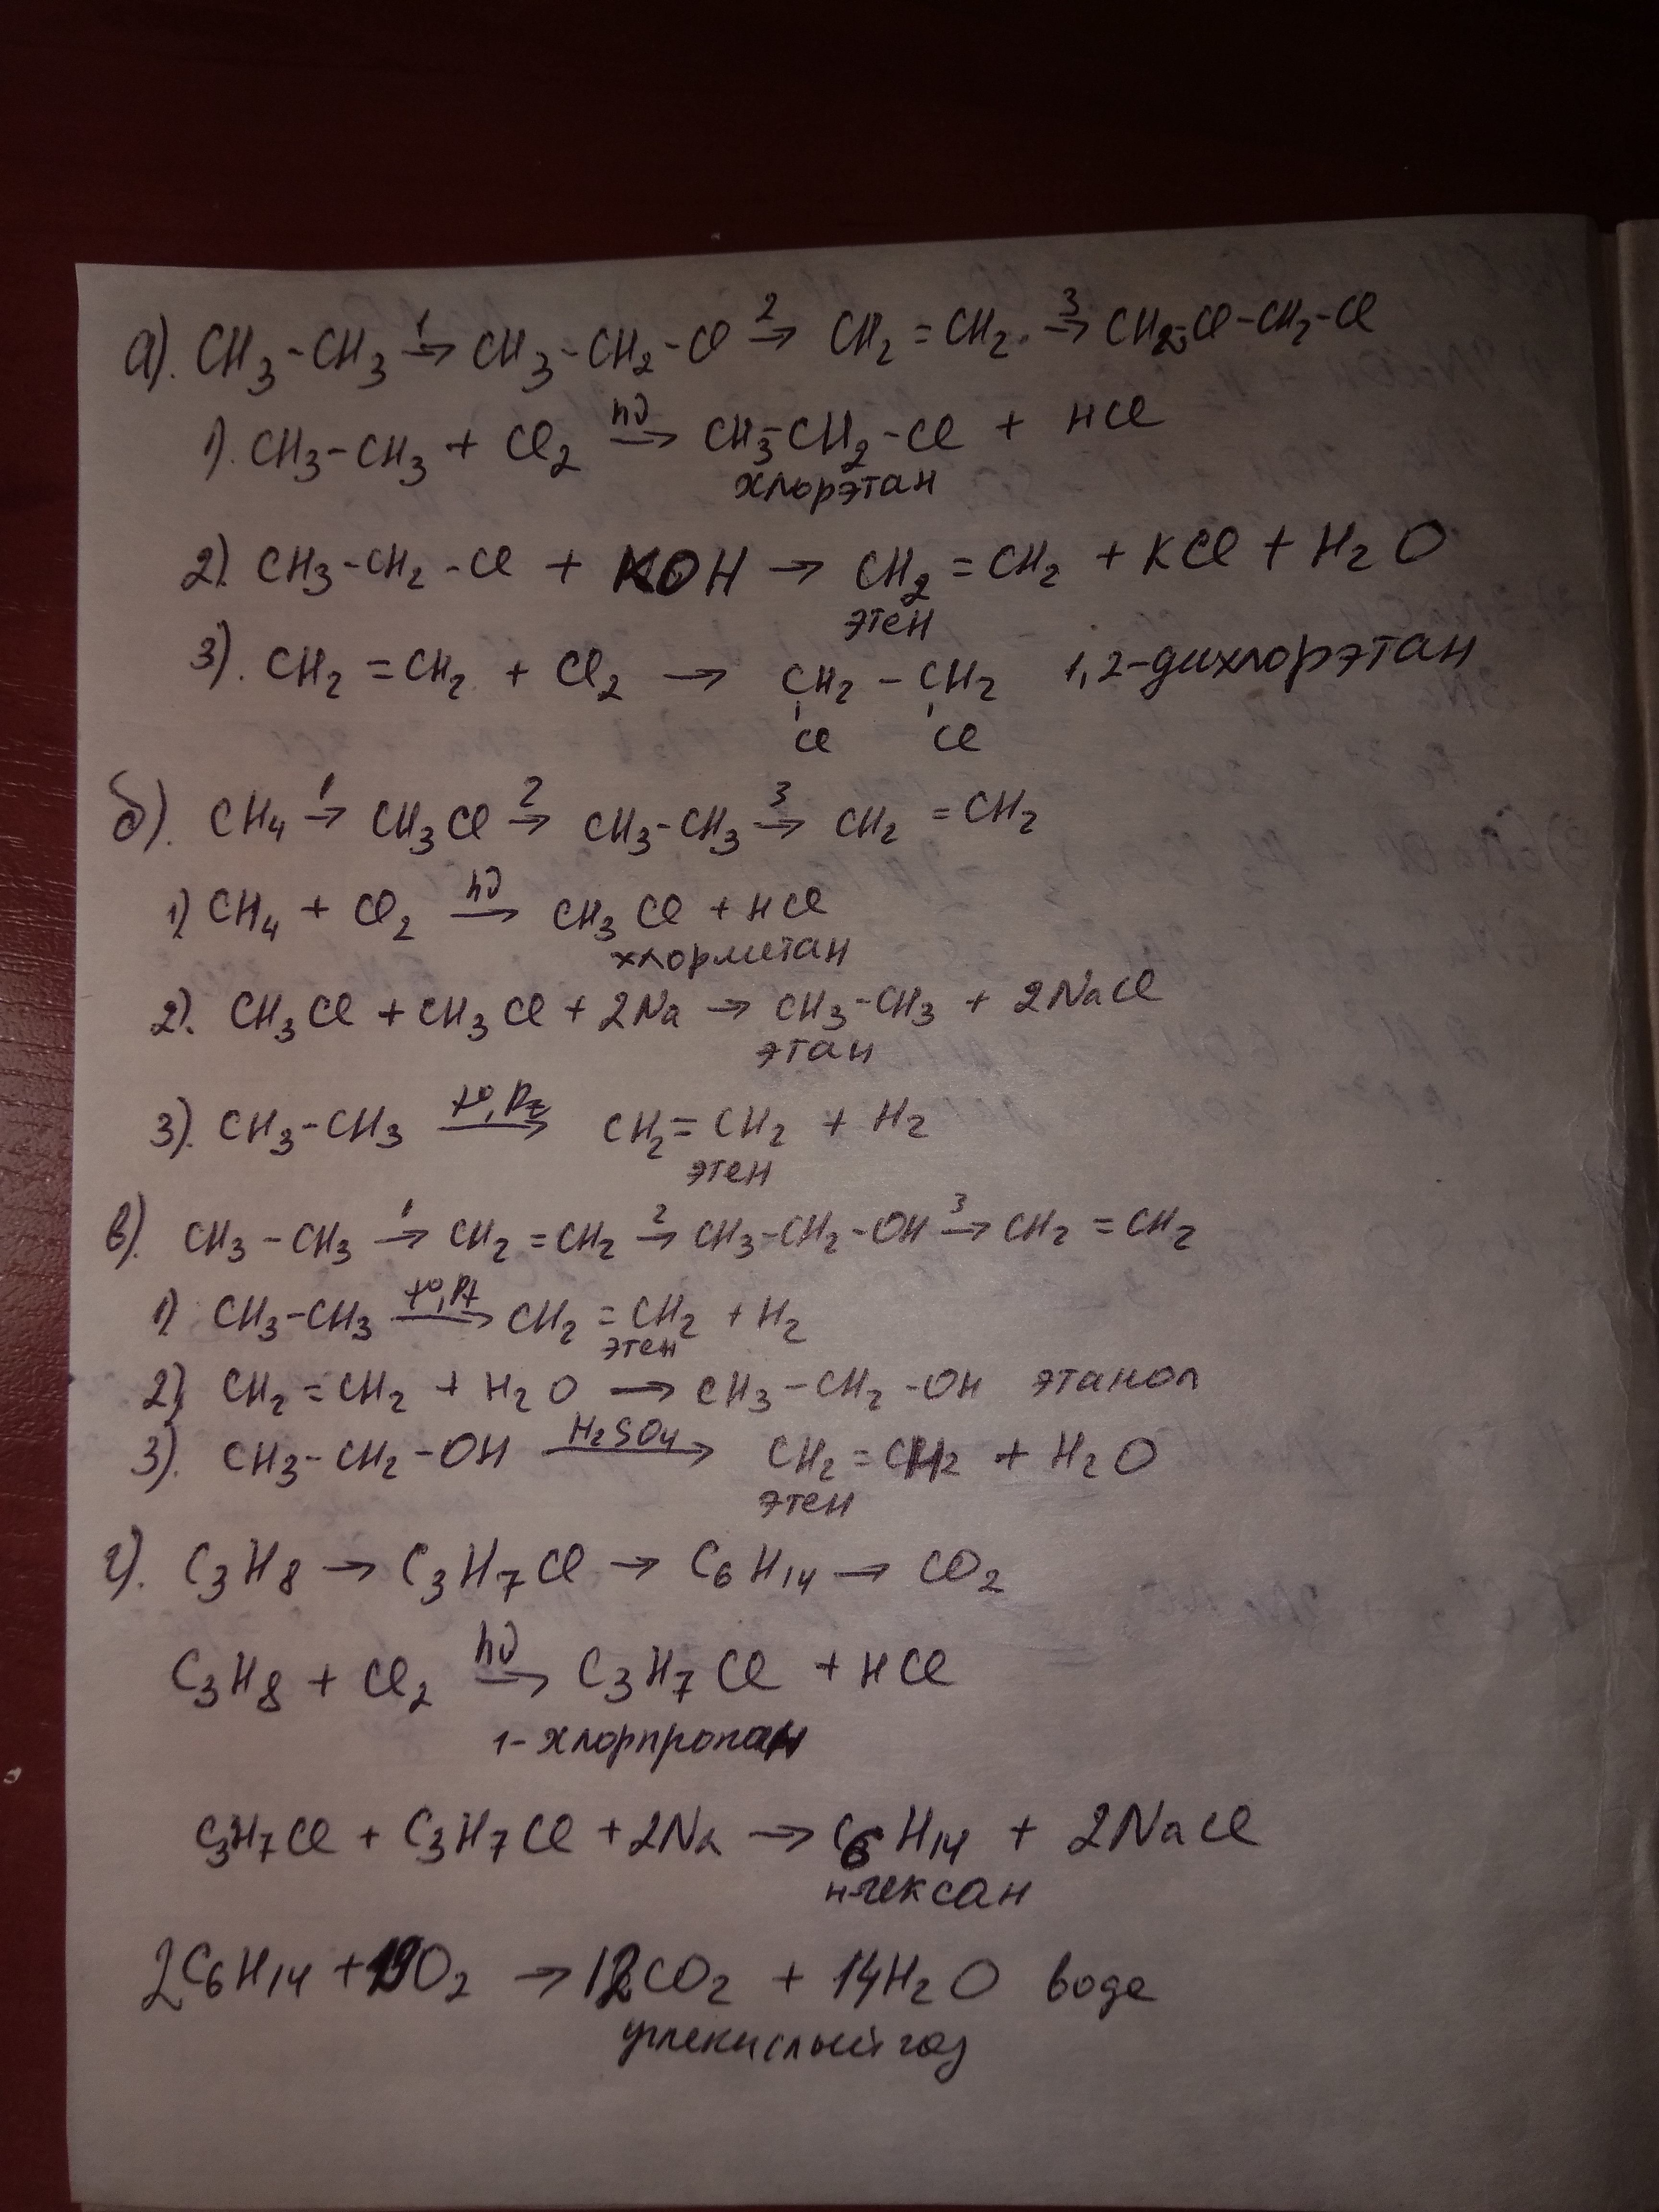 а). CH3-CH3 →1 CH3-CH2-Cl →2 CH2=CH2 →3 CH2-Cl-CH2-Cl
1). CH3-CH3 + Cl2 →hν CH3-CH2-Cl + HCl
хлорэтан
2). CH3-CH2-Cl + KOH → CH2=CH2 + KCl + H2O
этен
3). CH2=CH2 + Cl2 → CH2-CH2 1,2-дихлорэтан
Cl Cl
б). CH4 →1 CH3Cl →2 CH3-CH3 →3 CH2=CH2
1) CH4 + Cl2 →hν CH3Cl + HCl
хлорметан
2). CH3Cl + CH3Cl + 2Na → CH3-CH3 + 2NaCl
этан
3). CH3-CH3 →t°, Pt CH2=CH2 + H2
этен
в). CH3-CH3 →1 CH2=CH2 →2 CH3-CH2-OH →3 CH2=CH2
1) CH3-CH3 →t°, Pt CH2=CH2 + H2
этен
2) CH2=CH2 + H2O → CH3-CH2-OH этанол
3). CH3-CH2-OH →H2SO4 CH2=CH2 + H2O
этен
г). C3H8 → C3H7Cl → C6H14 → CO2
C3H8 + Cl2 →hν C3H7Cl + HCl
1-хлорпропан
C3H7Cl + C3H7Cl + 2Na → C6H14 + 2NaCl
н-гексан
2C6H14 + 19O2 → 12CO2 + 14H2O воде
углекислый газ